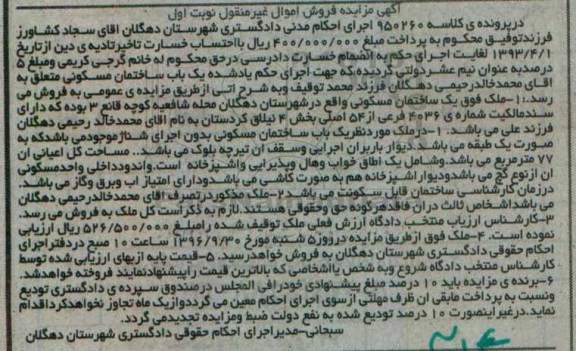 آگهی مزایده فروش اموال غیرمنقول نوبت اول
درپرونده ی کلاسه ۹۵۰۲۶۰ اجرای احکام مدنی دادگستری شهرستان دهگلان آقای سجاد کشاورز
فرزندتوفیق محکوم به پرداخت مبلغ ۴۰۰/۰۰۰/۰۰۰ ریال بااحتساب خسارت تاخیرتادیه ی دین ازتاریخ
۱۳۹۳/۴/۱ لغایت اجرای حکم به انضمام خسارت دادرسی درحق محکوم له خانم گرجی کریمی ومبلغ ۵
درصدبه عنوان نیم عشردولتی گردیده که جهت اجرای حکم یادشده یک باب ساختمان مسکونی متعلق به
آقای محمدخالدرحیمی دهگلان فرزند محمد توقیف وبه شرح آتی ازطریق مزایده ی عمومی به فروش می
رسد.:۱-ملک فوق یک ساختمان مسکونی واقع درشهرستان دهگلان محله شافعیه کوچه قانع ۳ بوده که دارای
سندمالکیت شماره ی ۴۰۳۶ فرعی از۵۴ اصلی بخش ۴ نیلاق کردستان به نام آقای محمدخالد رحیمی دهگلان
فرزند علی می باشد. ۱-درملک موردنظریک باب ساختمان مسکونی بدون اجرای شناژموجودمی باشدکه به
صورت یک طبقه می باشد.دیوار باربران اجرایی وسقف آن تیرچه بلوک می باشد.. مساحت کل اعیانی آن
۷۷ مترمربع می باشد.وشامل یک اطاق خواب وهال وپذیرایی واشپزخانه است.واندودداخلی واحدمسکونی
ان ازنوع گچ می باشدودیوار اشپزخانه هم به صورت کاشی می باشدودارای امتیاز اب وبرق وگاز می باشد.
درزمان کارشناسی ساختمان قابل سکونت می باشد ۲-ملک مذکوردرتصرف آقای محمدخالدرحیمی دهگلان
می باشداشخاص ثالث در آن فاقدهرگونه حق وحقوقی هستند.لازم به ذکراست کل ملک به فروش می رسد.
۳-کارشناس ارزیاب منتخب دادگاه ارزش فعلی ملک توقیف شده رامبلغ ۵۲۶/۵۰۰/۰۰۰ ریال ارزیابی
نموده است. ۴-ملک فوق ازطریق مزایده درروز۵ شنبه مورخ ۱۳۹۶/۹/۳۰ ساعت ۱۰ صبح دردفتراجرای
احکام حقوقی دادگستری شهرستان دهگلان به فروش خواهدرسید. ۵-قیمت پایه ازبهای ارزیابی شده توسط
کارشناس منتخب دادگاه شروع وبه شخص یااشخاصی که بالاترین قیمت راپیشنهادنمایند فروخته خواهدشد.
۶-برنده ی مزایده باید ۱۰ درصد مبلغ پیشنهادی خودرافی المجلس درصندوق سپرده ی دادگستری تودیع
ونسبت به پرداخت مابقی آن ظرف مهلتی ازسوی اجرای احکام معین می گرددوازیک ماه تجاوز نخواهدکرداقدام
نماید.درغیراینصورت ۱۰ درصد تودیع شده به نفع دولت ضبط ومزایده تجدیدمی گردد.
سبحانی-مدیراجرای احکام حقوقی دادگستری شهرستان دهگلان